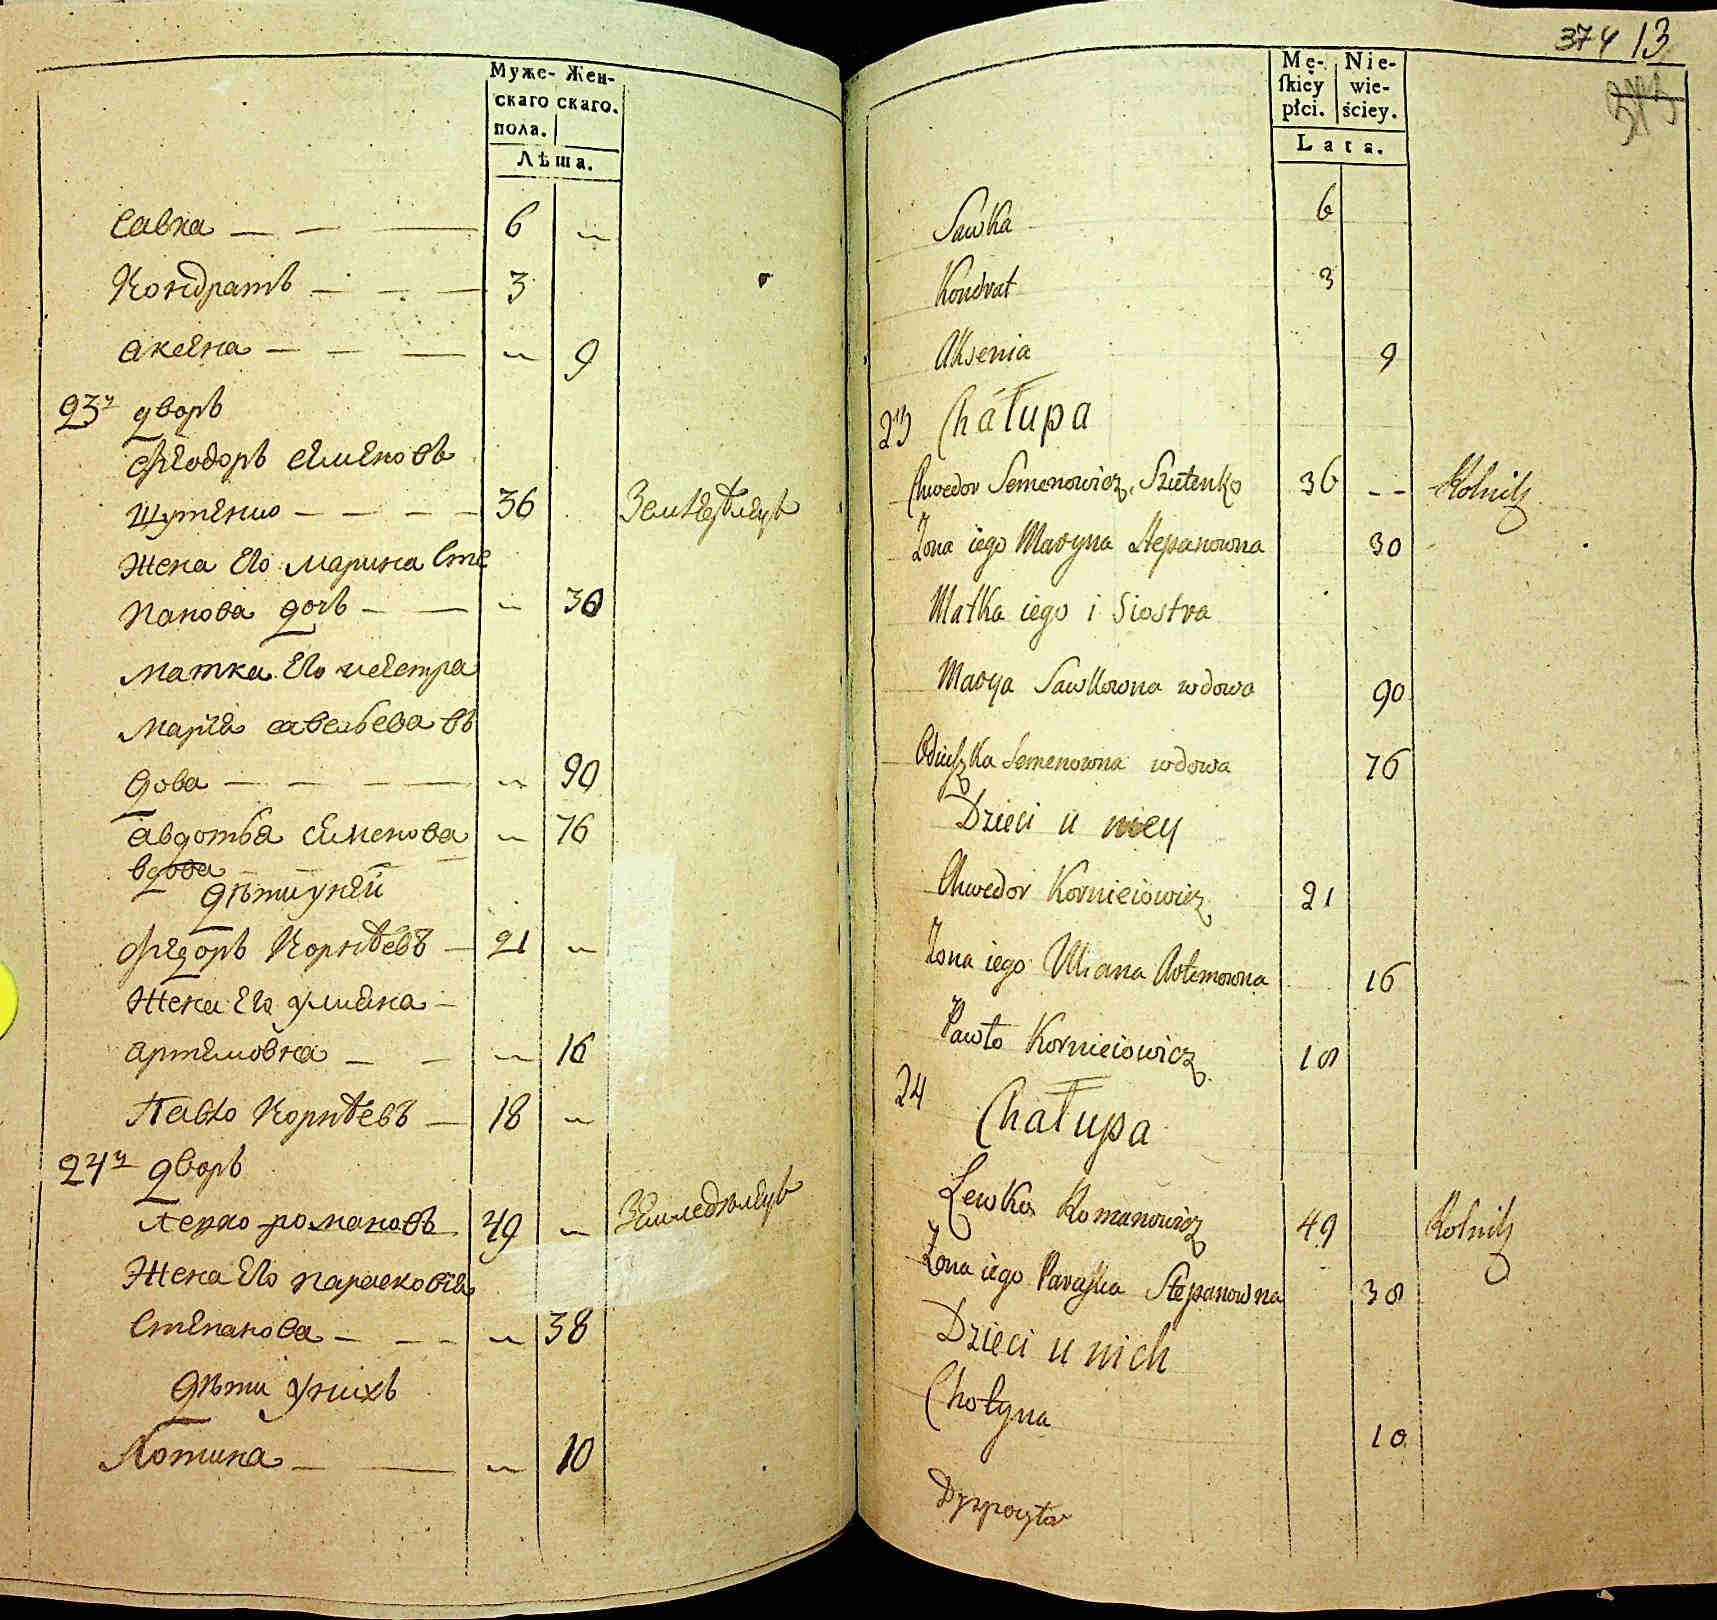 Муже- Жен-
скаго скаго.
пола.
Лѣта.
Савка — — — 6 —
Кондратъ — — — 3
Аксена — — — — 9
23й дворъ
Фёодоръ Семеновъ
Шутенко — — — — 36 Земледѣлецъ
Жена Его Марина Сте
панова дочь — — — 30
Матка Его и сестра
Марія савельева въ
дова — — — — — 90
авдотья Семенова — 76
вдова — — —
дѣти у ней
Фёдоръ Корнѣевъ — 21 —
Жена Его улиана —
артемовна — — — 16
Павло Корнѣевъ — 18 —
24й дворъ
Левко романовъ 49 — Земледѣлецъ
Жена Его парасковія
Степанова — — — — 38
дѣти у нихъ
Хотина — — — 10
374 13
Mę- Nie-
ſkiey wie-
płci. ściey.
Lata.
Sawka 6
Kondrat 3
Aksenia 9
23 Chałupa
Chwedor Semenowicz Szutenko 36 -- Rolnik
Żona iego Maryna Stepanowna 30
Matka iego i Siostra
Marya Sawkowna wdowa 90
Semenowna wdowa 76
Dzieci u niey
Chwedor Kornieiowicz 21
Żona iego Uliana Artemowna 16
Pawło Kornieiowicz 18
24
Chałupa
Lewko Romanowicz 49 Rolnik
Żona iego Paraſka Stepanowna 38
Dzieci u nich
Chotyna 10